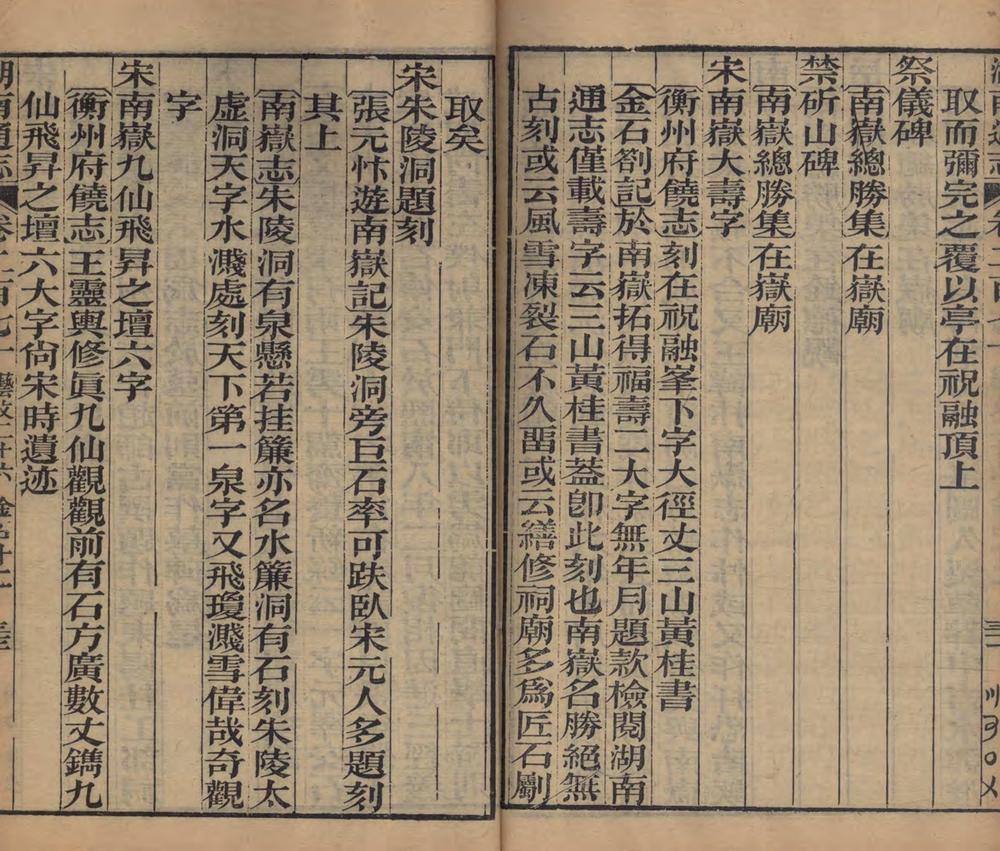 取而彌完之覆以亭在祝融頂上
祭儀碑
南嶽總勝集在嶽廟
禁斫山碑
南嶽總勝集在嶽廟
宋南嶽大壽字
衡州府饒志刻在祝融峯下字大徑丈三山黃桂書
金石劄記於南嶽拓得福壽二大字無年月題款檢閱湖南
通志僅載壽字云三山黃桂書葢卽此刻也南嶽名勝絕無
古刻或云風雪凍裂石不久留或云繕修祠廟多爲匠石劘
取矣
宋朱陵洞題刻
張元忭遊南嶽記朱陵洞旁巨石率可趺臥宋元人多題刻
其上
南嶽志朱陵洞有泉懸若挂簾亦名水簾洞有石刻朱陵太
虛洞天字水濺處刻天下第一泉字又飛瓊濺雪偉哉奇觀
字
宋南嶽九仙飛昇之壇六字
衡州府饒志王靈輿修眞九仙觀觀前有石方廣數丈鐫九
仙飛昇之壇六大字尙宋時遺迹
湖南通志 卷二百七十一 藝文二十六 金石十二